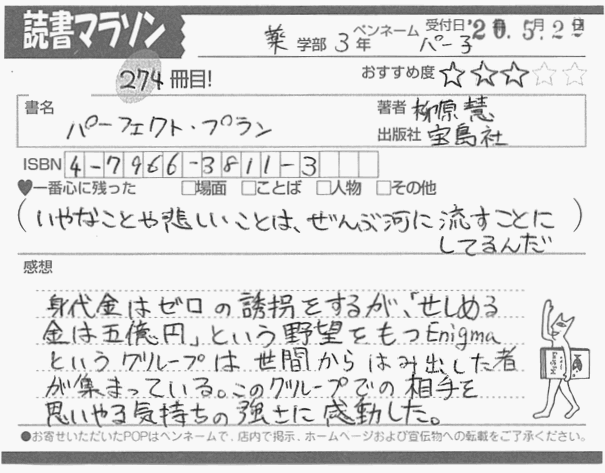 読書マラソン
薬 学部 3 年 ペンネーム パー子 受付日 '20.5.2
274 冊目!
おすすめ度 ☆☆☆☆☆
書名 パーフェクト・プラン
著者 柳原慧
出版社 宝島社
ISBN 4-7966-3811-3
♥一番心に残った □場面 □ことば □人物 □その他
(いやなことや悲しいことは、ぜんぶ河に流すことに
してるんだ)
感想
身代金はゼロの誘拐をするが、「せしめる
金は五億円」という野望をもつEnigma
というグループは世間からはみ出した者
が集まっている。このグループでの相手を
思いやる気持ちの強さに感動した。
●お寄せいただいたPOPはペンネームで、店内で掲示、ホームページおよび宣伝物への転載をご了承ください。